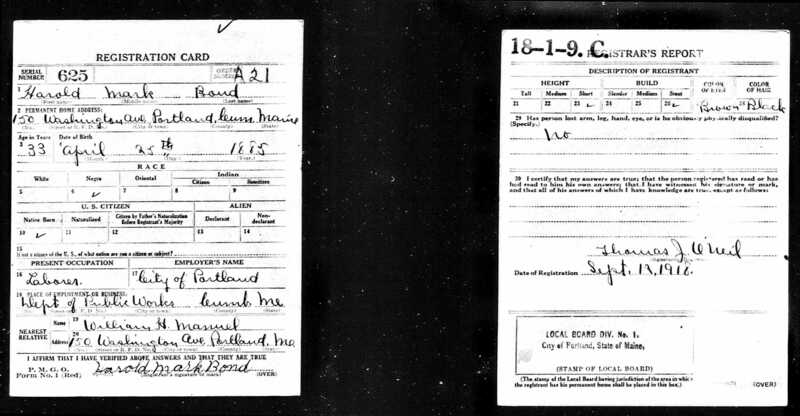 REGISTRATION CARD
SERIAL NUMBER 625 ORDER NUMBER A21
1 Harold Mark Bond
(First name) (Middle name) (Last name)
2 PERMANENT HOME ADDRESS:
150 Washington Ave Portland, Cumb. Maine
(No.) (Street or R. F. D. No.) (City or town) (County) (State)
Age in Years Date of Birth
3 33 4 April 25th 1885
(Month) (Day) (Year)
RACE
White Negro Oriental Indian
Citizen Noncitizen
5 6 ✓ 7 8 9
U. S. CITIZEN ALIEN
Native Born Naturalized Citizen by Father's Naturalization Before Registrant's Majority Declarant Non-declarant
10 ✓ 11 12 13 14
15
If not a citizen of the U. S., of what nation are you a citizen or subject?
PRESENT OCCUPATION EMPLOYER'S NAME
16 Laborer 17 City of Portland
18 PLACE OF EMPLOYMENT OR BUSINESS:
Dept of Public Works Cumb. Me
(No.) (Street or R. F. D. No.) (City or town) (County) (State)
NEAREST RELATIVE Name 19 William H. Manuel
Address 20 150 Washington Ave, Portland, Me
(No.) (Street or R. F. D. No.) (City or town) (County) (State)
I AFFIRM THAT I HAVE VERIFIED ABOVE ANSWERS AND THAT THEY ARE TRUE
P. M. G. O.
Form No. 1 (Red) Harold Mark Bond
(Registrant's signature or mark) (OVER)
18-1-9. C. REGISTRAR'S REPORT
DESCRIPTION OF REGISTRANT
HEIGHT BUILD COLOR OF EYES COLOR OF HAIR
Tall Medium Short Slender Medium Stout
21 22 23 ✓ 24 25 26 ✓ 27 Brown 28 Black
29 Has person lost arm, leg, hand, eye, or is he obviously physically disqualified?
(Specify.)
No
30 I certify that my answers are true; that the person registered has read or has
had read to him his own answers; that I have witnessed his signature or mark,
and that all of his answers of which I have knowledge are true, except as follows:
Thomas J. O'Neil
Date of Registration Sept. 12, 1918
LOCAL BOARD DIV. No. 1.
City of Portland, State of Maine,
(STAMP OF LOCAL BOARD)
(The stamp of the Local Board having jurisdiction of the area in which
the registrant has his permanent home shall be placed in this box.) (OVER)